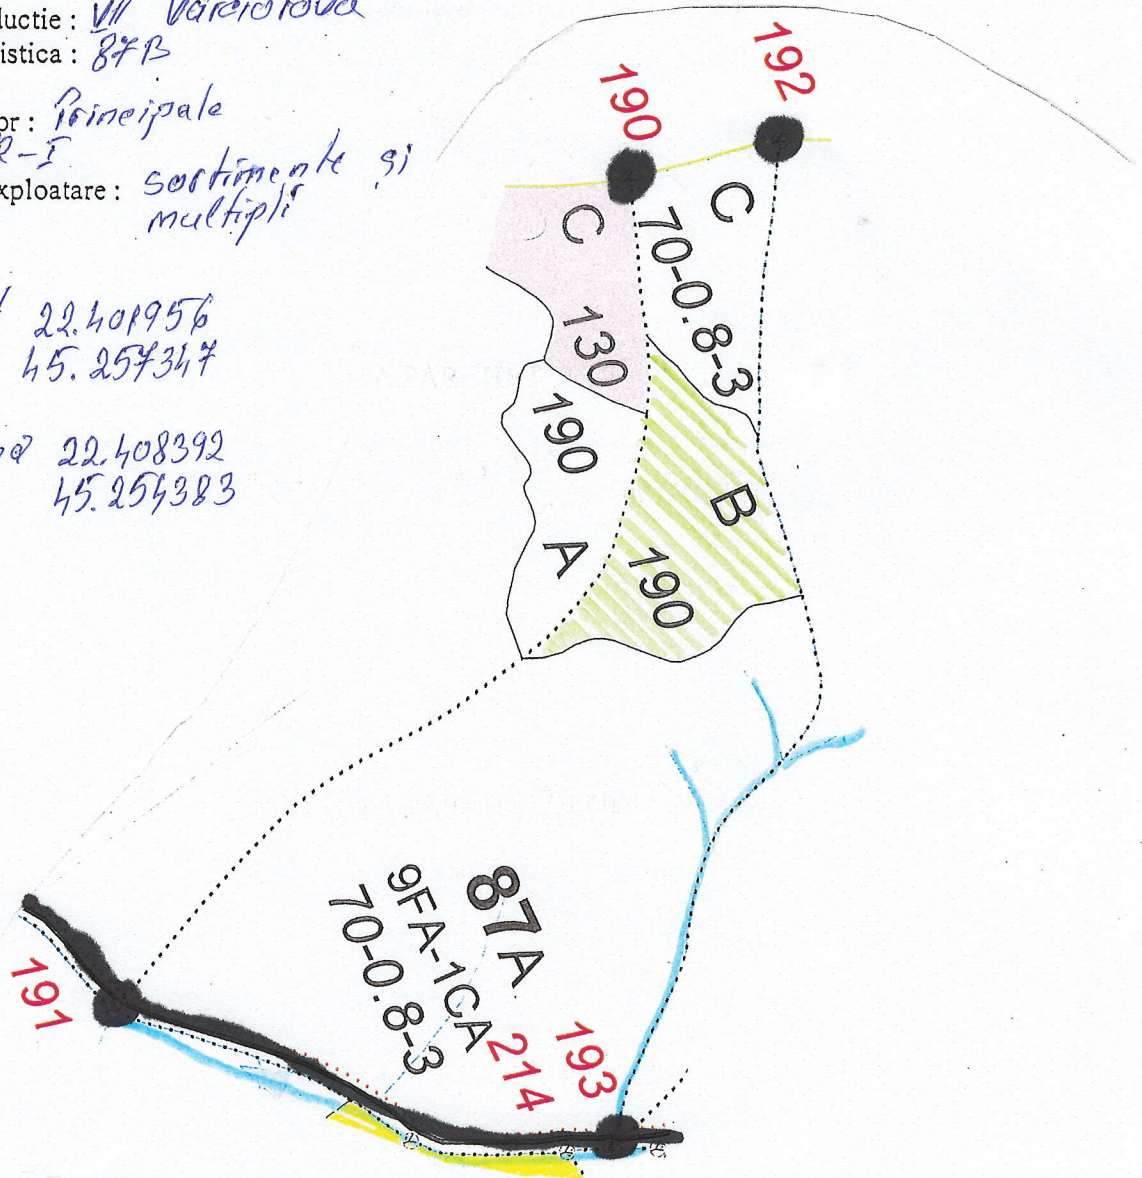 ductie : VII Varciorova
istica : 87B
or : Principale
R-I
xploatare : sortimente și
multipli
22.401956
45.257347
22.408392
45.254383
190
192
C
C
70-0.8-3
130
190
A
B
190
87A
9FA-1CA
70-0.8-3
191
214
193